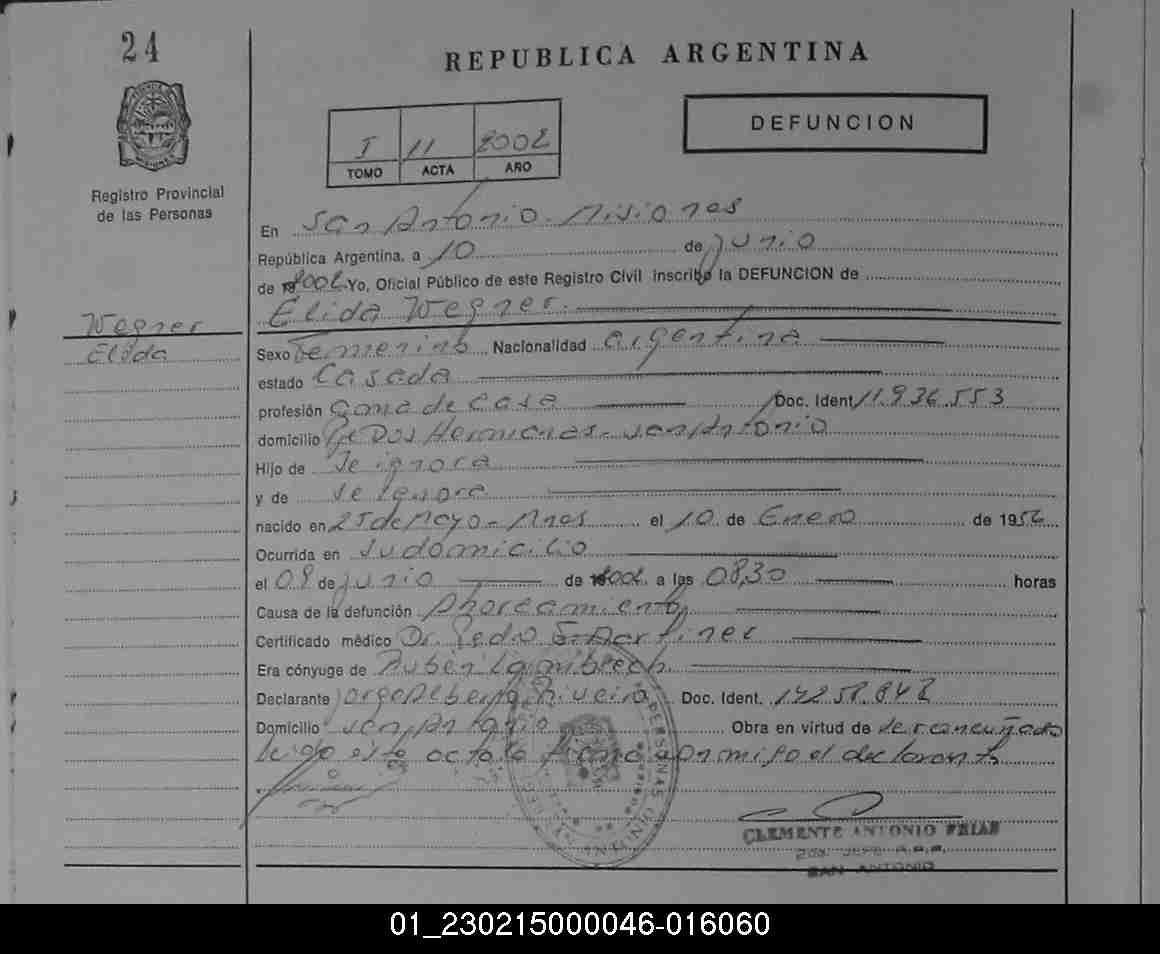 24
REPUBLICA ARGENTINA
DEFUNCION
I 11 2002
TOMO ACTA AÑO
Registro Provincial
de las Personas
En San Antonio. Misiones
República Argentina, a 10 de junio
de 2002 Yo, Oficial Público de este Registro Civil inscribo la DEFUNCION de
Elida Wegner.
Wegner
Elida
Sexo Femenino Nacionalidad argentina
estado Casada
profesión ama de casa Doc. Ident. 11.936.553
domicilio Pje Dos Hermanas - San Antonio
Hijo de Se ignora
y de Se ignora
nacido en 25 de Mayo - Mnes el 10 de Enero de 1956
Ocurrida en Su domicilio
el 09 de junio de 2002 a las 08,30 horas
Causa de la defunción Ahorcamiento
Certificado médico Dr. Pedro E. Martinez
Era cónyuge de Ruben
Declarante Jorge Alberto Doc. Ident.
Domicilio San Antonio Obra en virtud de ser concuñado
leido este acto lo firma conmigo el declarante
PERSONAS
CLEMENTE ANTONIO FRIAS
SAN ANTONIO
01_230215000046-016060